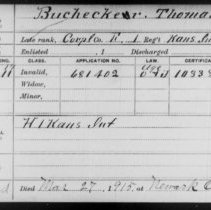 Buchecker, Thomas
Late rank, Corpl Co. E, 1 Reg't Kans. Inf
Enlisted 1 Discharged
CLASS. APPLICATION NO. LAW. CERTIFICA
Invalid, 681402
Widow,
Minor,
H1 Kans Inf
Died Mar 27, 1915, at Newark O